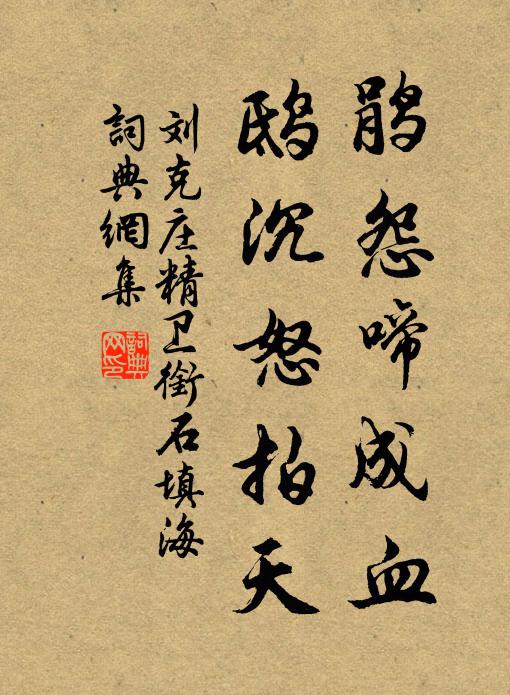 鹃怨啼成血
鸱沉怒拍天
刘克庄精卫衔石填海
詞典網集
詞典網印